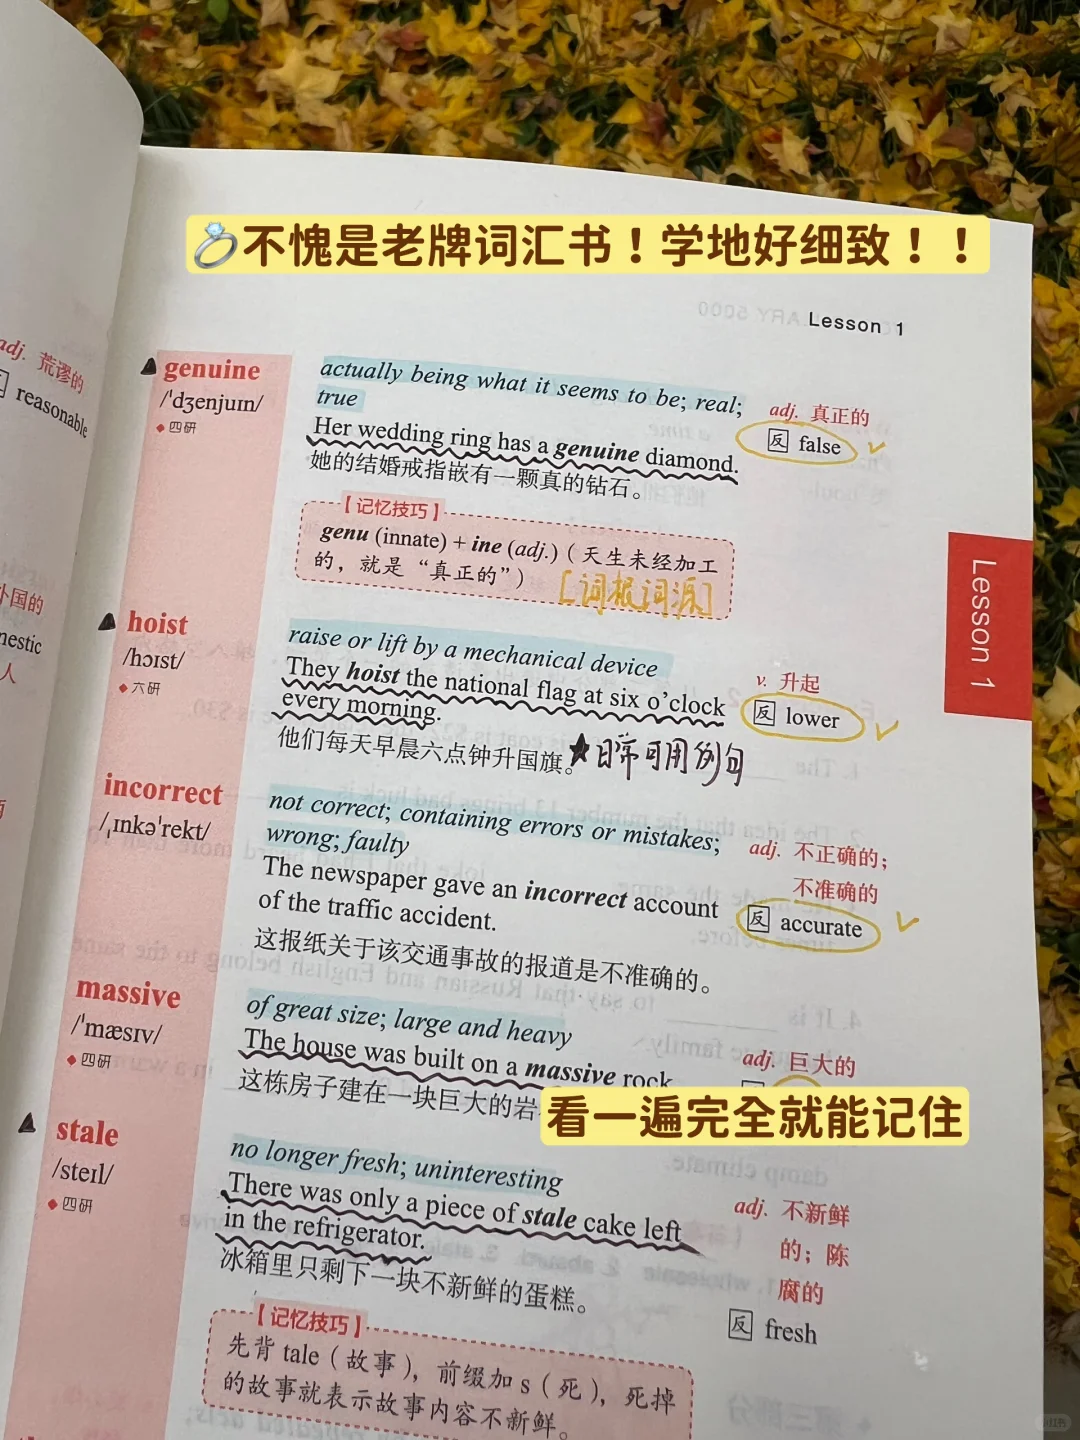 💍不愧是老牌词汇书！学地好细致！！
Lesson 1
adj. 荒谬的
反 reasonable
外国的
人
genuine
/ˈdʒenjuɪn/
◆四研
actually being what it seems to be; real;
true
Her wedding ring has a genuine diamond.
她的结婚戒指嵌有一颗真的钻石。
adj. 真正的
反 false
【记忆技巧】
genu (innate) + ine (adj.)（天生未经加工
的，就是“真正的”）
[词根词源]
Lesson 1
hoist
/hɔɪst/
◆六研
raise or lift by a mechanical device
They hoist the national flag at six o’clock
every morning.
他们每天早晨六点钟升国旗。
★日常可用例句
v. 升起
反 lower
incorrect
/ˌɪnkəˈrekt/
not correct; containing errors or mistakes;
wrong; faulty
The newspaper gave an incorrect account
of the traffic accident.
这报纸关于该交通事故的报道是不准确的。
adj. 不正确的；
不准确的
反 accurate
massive
/ˈmæsɪv/
◆四研
of great size; large and heavy
The house was built on a massive rock
这栋房子建在一块巨大的岩
adj. 巨大的
看一遍完全就能记住
stale
/steɪl/
◆四研
no longer fresh; uninteresting
There was only a piece of stale cake left
in the refrigerator.
冰箱里只剩下一块不新鲜的蛋糕。
adj. 不新鲜
的；陈
腐的
反 fresh
【记忆技巧】
先背 tale（故事），前缀加 s（死），死掉
的故事就表示故事内容不新鲜。